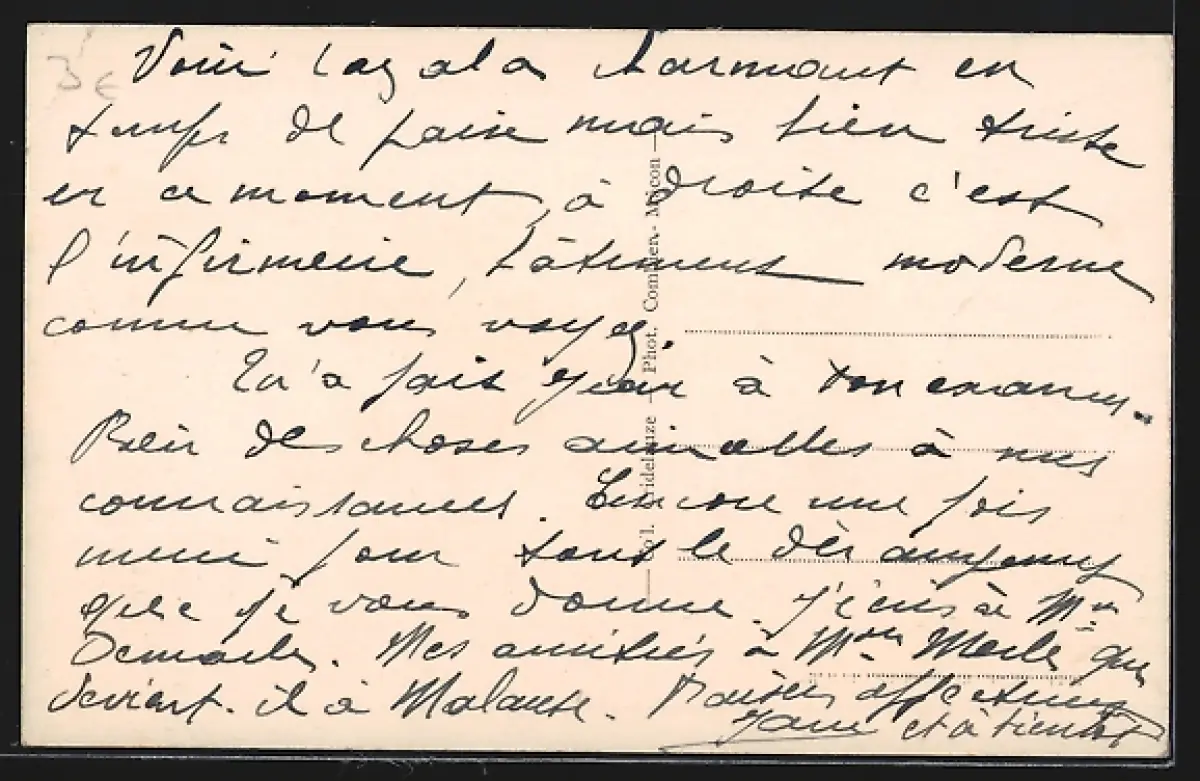 3 €
Voici Cazala charmant en
temps de paix mais bien triste
en ce moment, à droite c'est
l'infirmerie, bâtiment moderne
comme vous voyez.
a fait Jean à son examen.
Bien des choses aimables à nos
connaissances. Encore une fois
merci pour tout le dérangement
que je vous donne. J'écris à Mme
Mes amitiés à Mme Merle que
devient-il à Malause. Baisers affectueux
et à bientôt
Phot. Combier - Mâcon